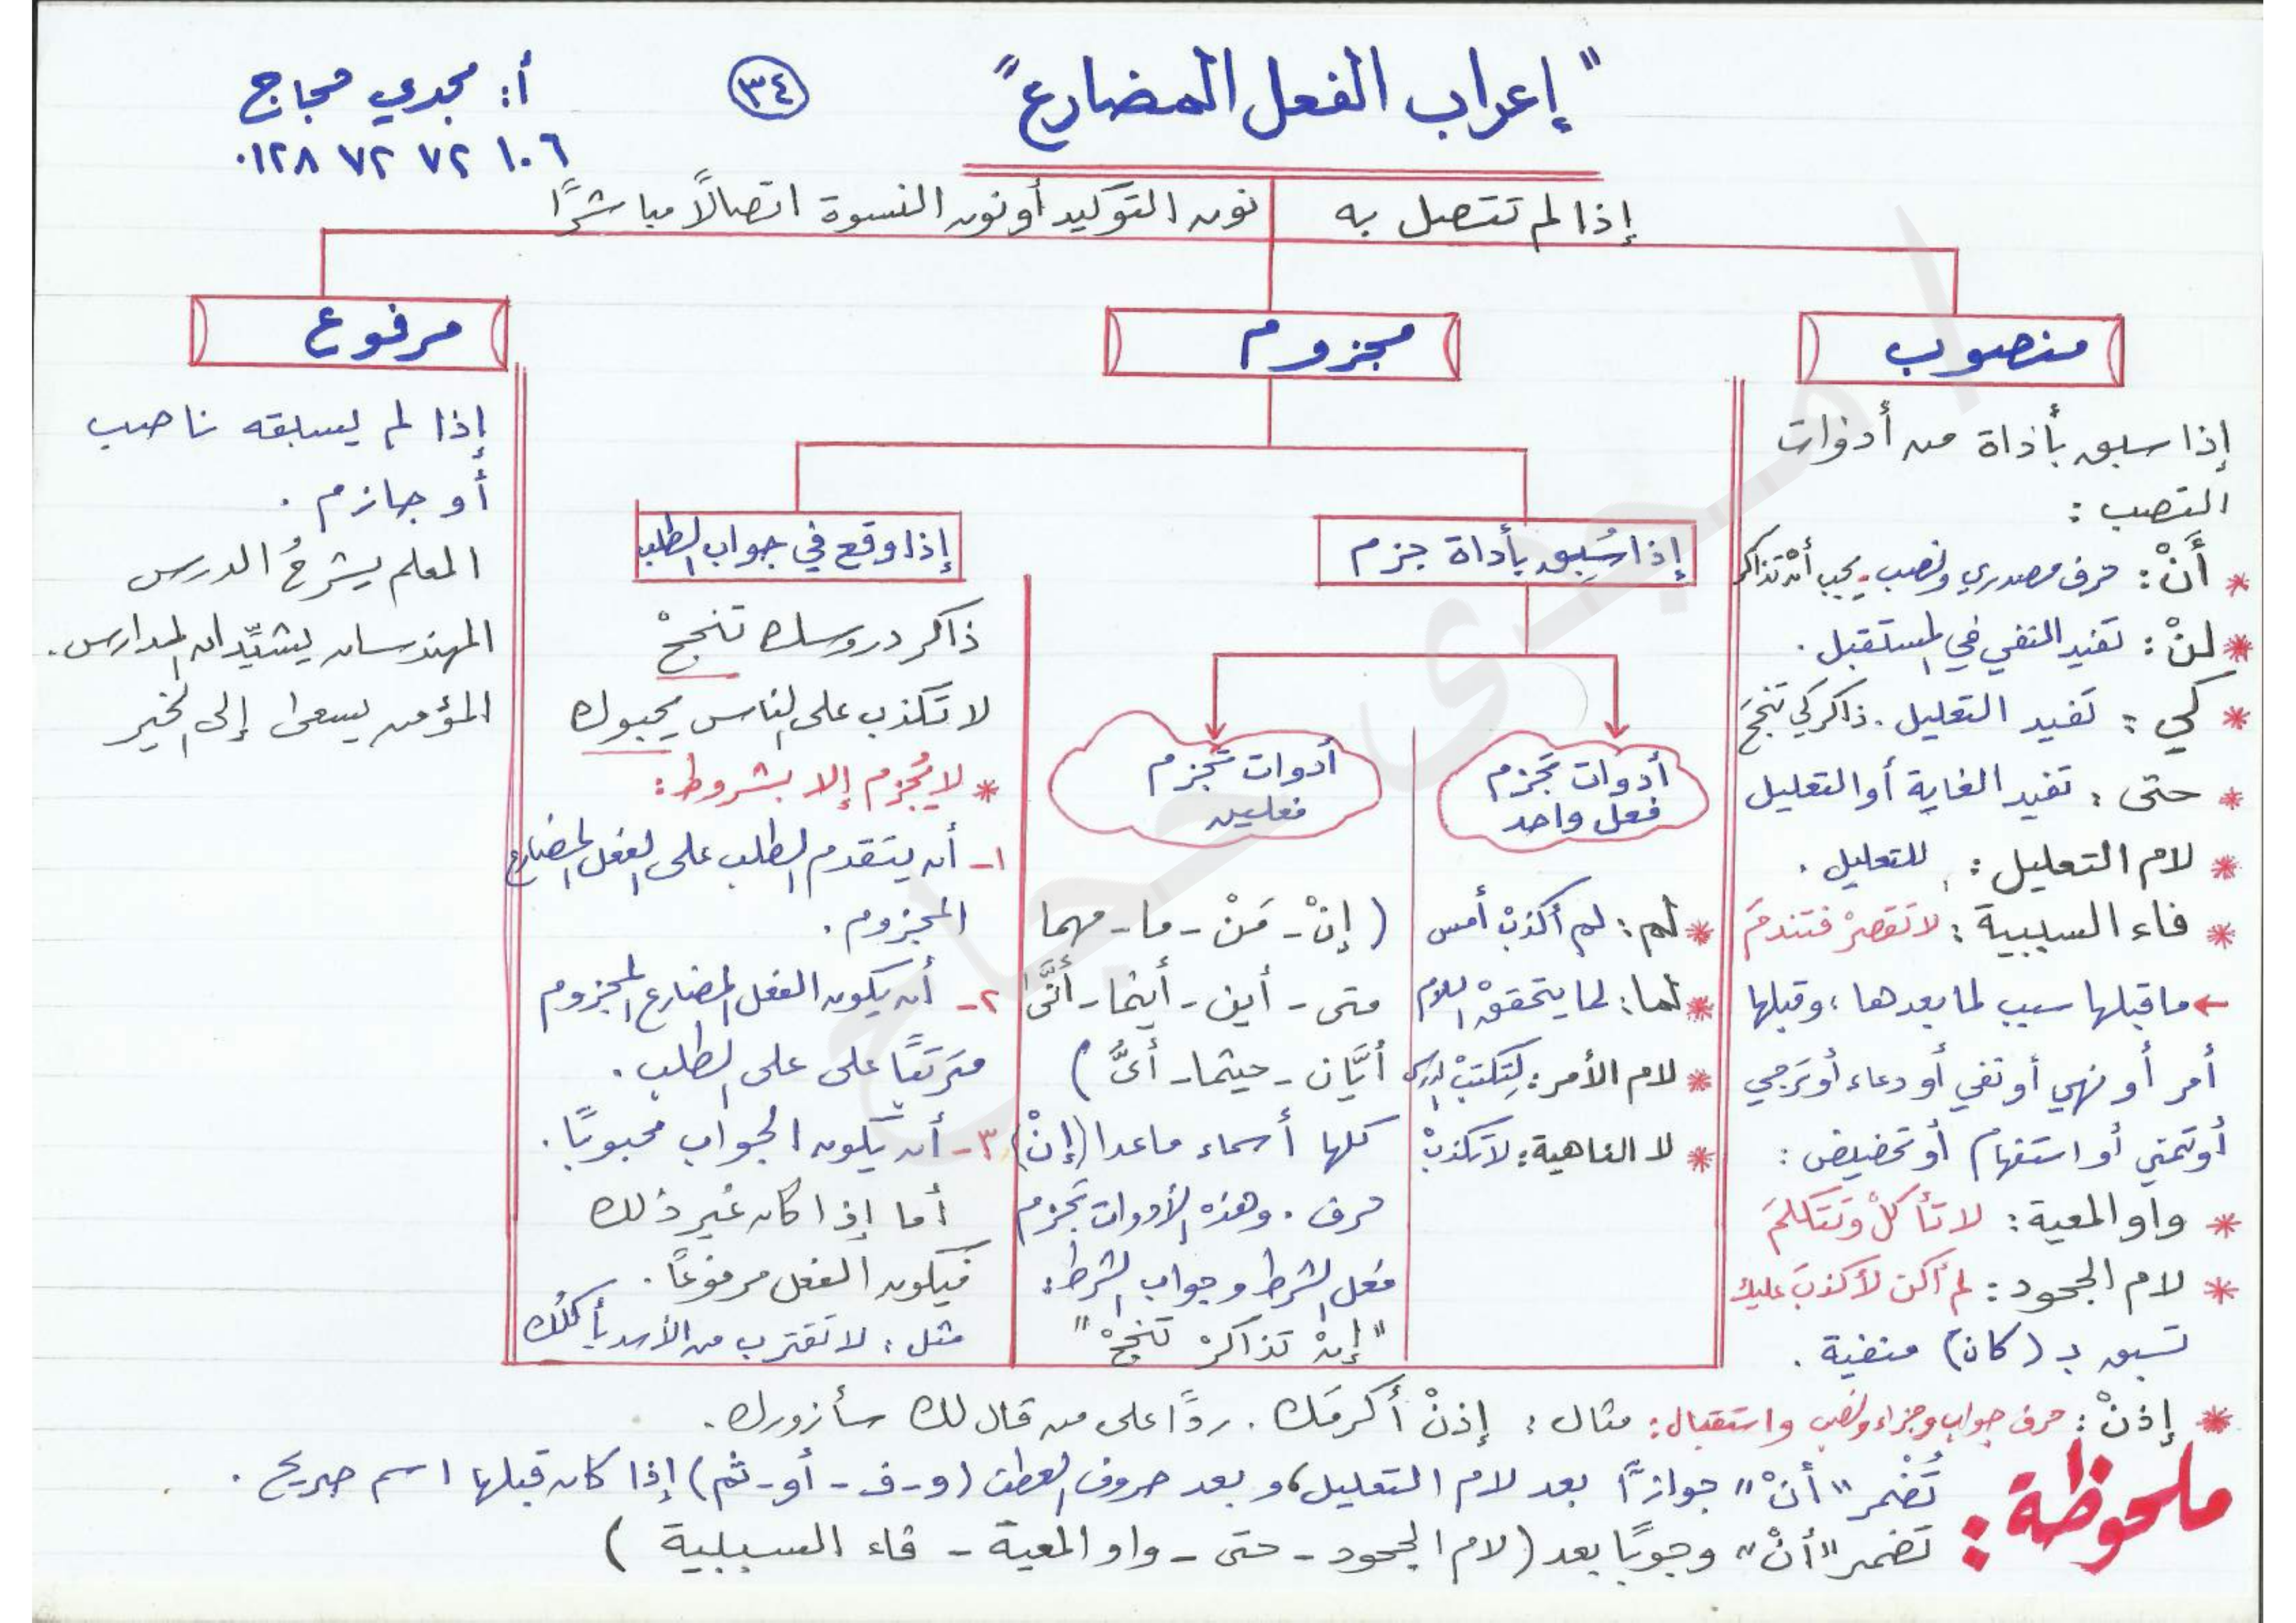 "إعراب الفعل المضارع"
٣٤
أ: مجدي حجاج
٠١٢٨ ٧٢ ٧٢ ١٠٦
إذا لم تتصل به نون التوكيد أو نون النسوة اتصالًا مباشرًا
منصوب
إذا سبق بأداة من أدوات
النصب :
* أَنْ : حرف مصدري ونصب - يجب أن تذاكر
* لنْ : تفيد النفي في المستقبل .
* كي : تفيد التعليل . ذاكر كي تنجحَ
* حتى : تفيد الغاية أو التعليل
* لام التعليل : للتعليل .
* فاء السببية : لا تقصرْ فتندمَ
← ما قبلها سبب لما بعدها ، وقبلها
أمر أو نهي أو نفي أو دعاء أو ترجي
أو تمني أو استفهام أو تحضيض :
* واو المعية : لا تأكلْ وتتكلمَ
* لام الجحود : لم أكن لأكذبَ عليك
تسبق بـ (كان) منفية .
مجزوم
إذا سُبِق بأداة جزم
أدوات تجزم
فعل واحد
* لم : لم أكذبْ أمس
* لما : لما يتحققْ
* لام الأمر : لِتكتبْ
* لا الناهية : لا تكذبْ
أدوات تجزم
فعلين
( إنْ - مَنْ - ما - مهما
متى - أين - أينما - أنَّى
أيَّان - حيثما - أىُّ )
كلها أسماء ماعدا (إنْ)
حرف . وهذه الأدوات تجزم
فعل الشرط وجواب الشرط :
"إنْ تذاكرْ تنجحْ"
إذا وقع في جواب الطلب
ذاكر دروسك تنجحْ
لا تكذب على الناس يحبوك
* لا يُجزم إلا بشروط :
١- أن يتقدم الطلب على الفعل المضارع
المجزوم .
٢- أن يكون الفعل المضارع المجزوم
مترتبًا على على الطلب .
٣- أن يكون الجواب محبوبًا .
أما إذا كان غير ذلك
فيكون الفعل مرفوعًا .
مثل : لا تقترب من الأسد يأكلُك
مرفوع
إذا لم يسبقه ناصب
أو جازم .
المعلم يشرحُ الدرس
المهندسان يشيِّدان المدارس .
المؤمن يسعى إلى الخير
* إذنْ : حرف جواب وجزاء ونصب واستقبال : مثال : إذنْ أكرمَك . ردًا على من قال لك سأزورك .
ملحوظة :
تُضْمر "أنْ" جوازًا بعد لام التعليل، وبعد حروف العطف (و - ف - أو - ثم) إذا كان قبلها اسم صريح .
تضمر "أنْ" وجوبًا بعد (لام الجحود - حتى - واو المعية - فاء السببية )
مجدى حجاج